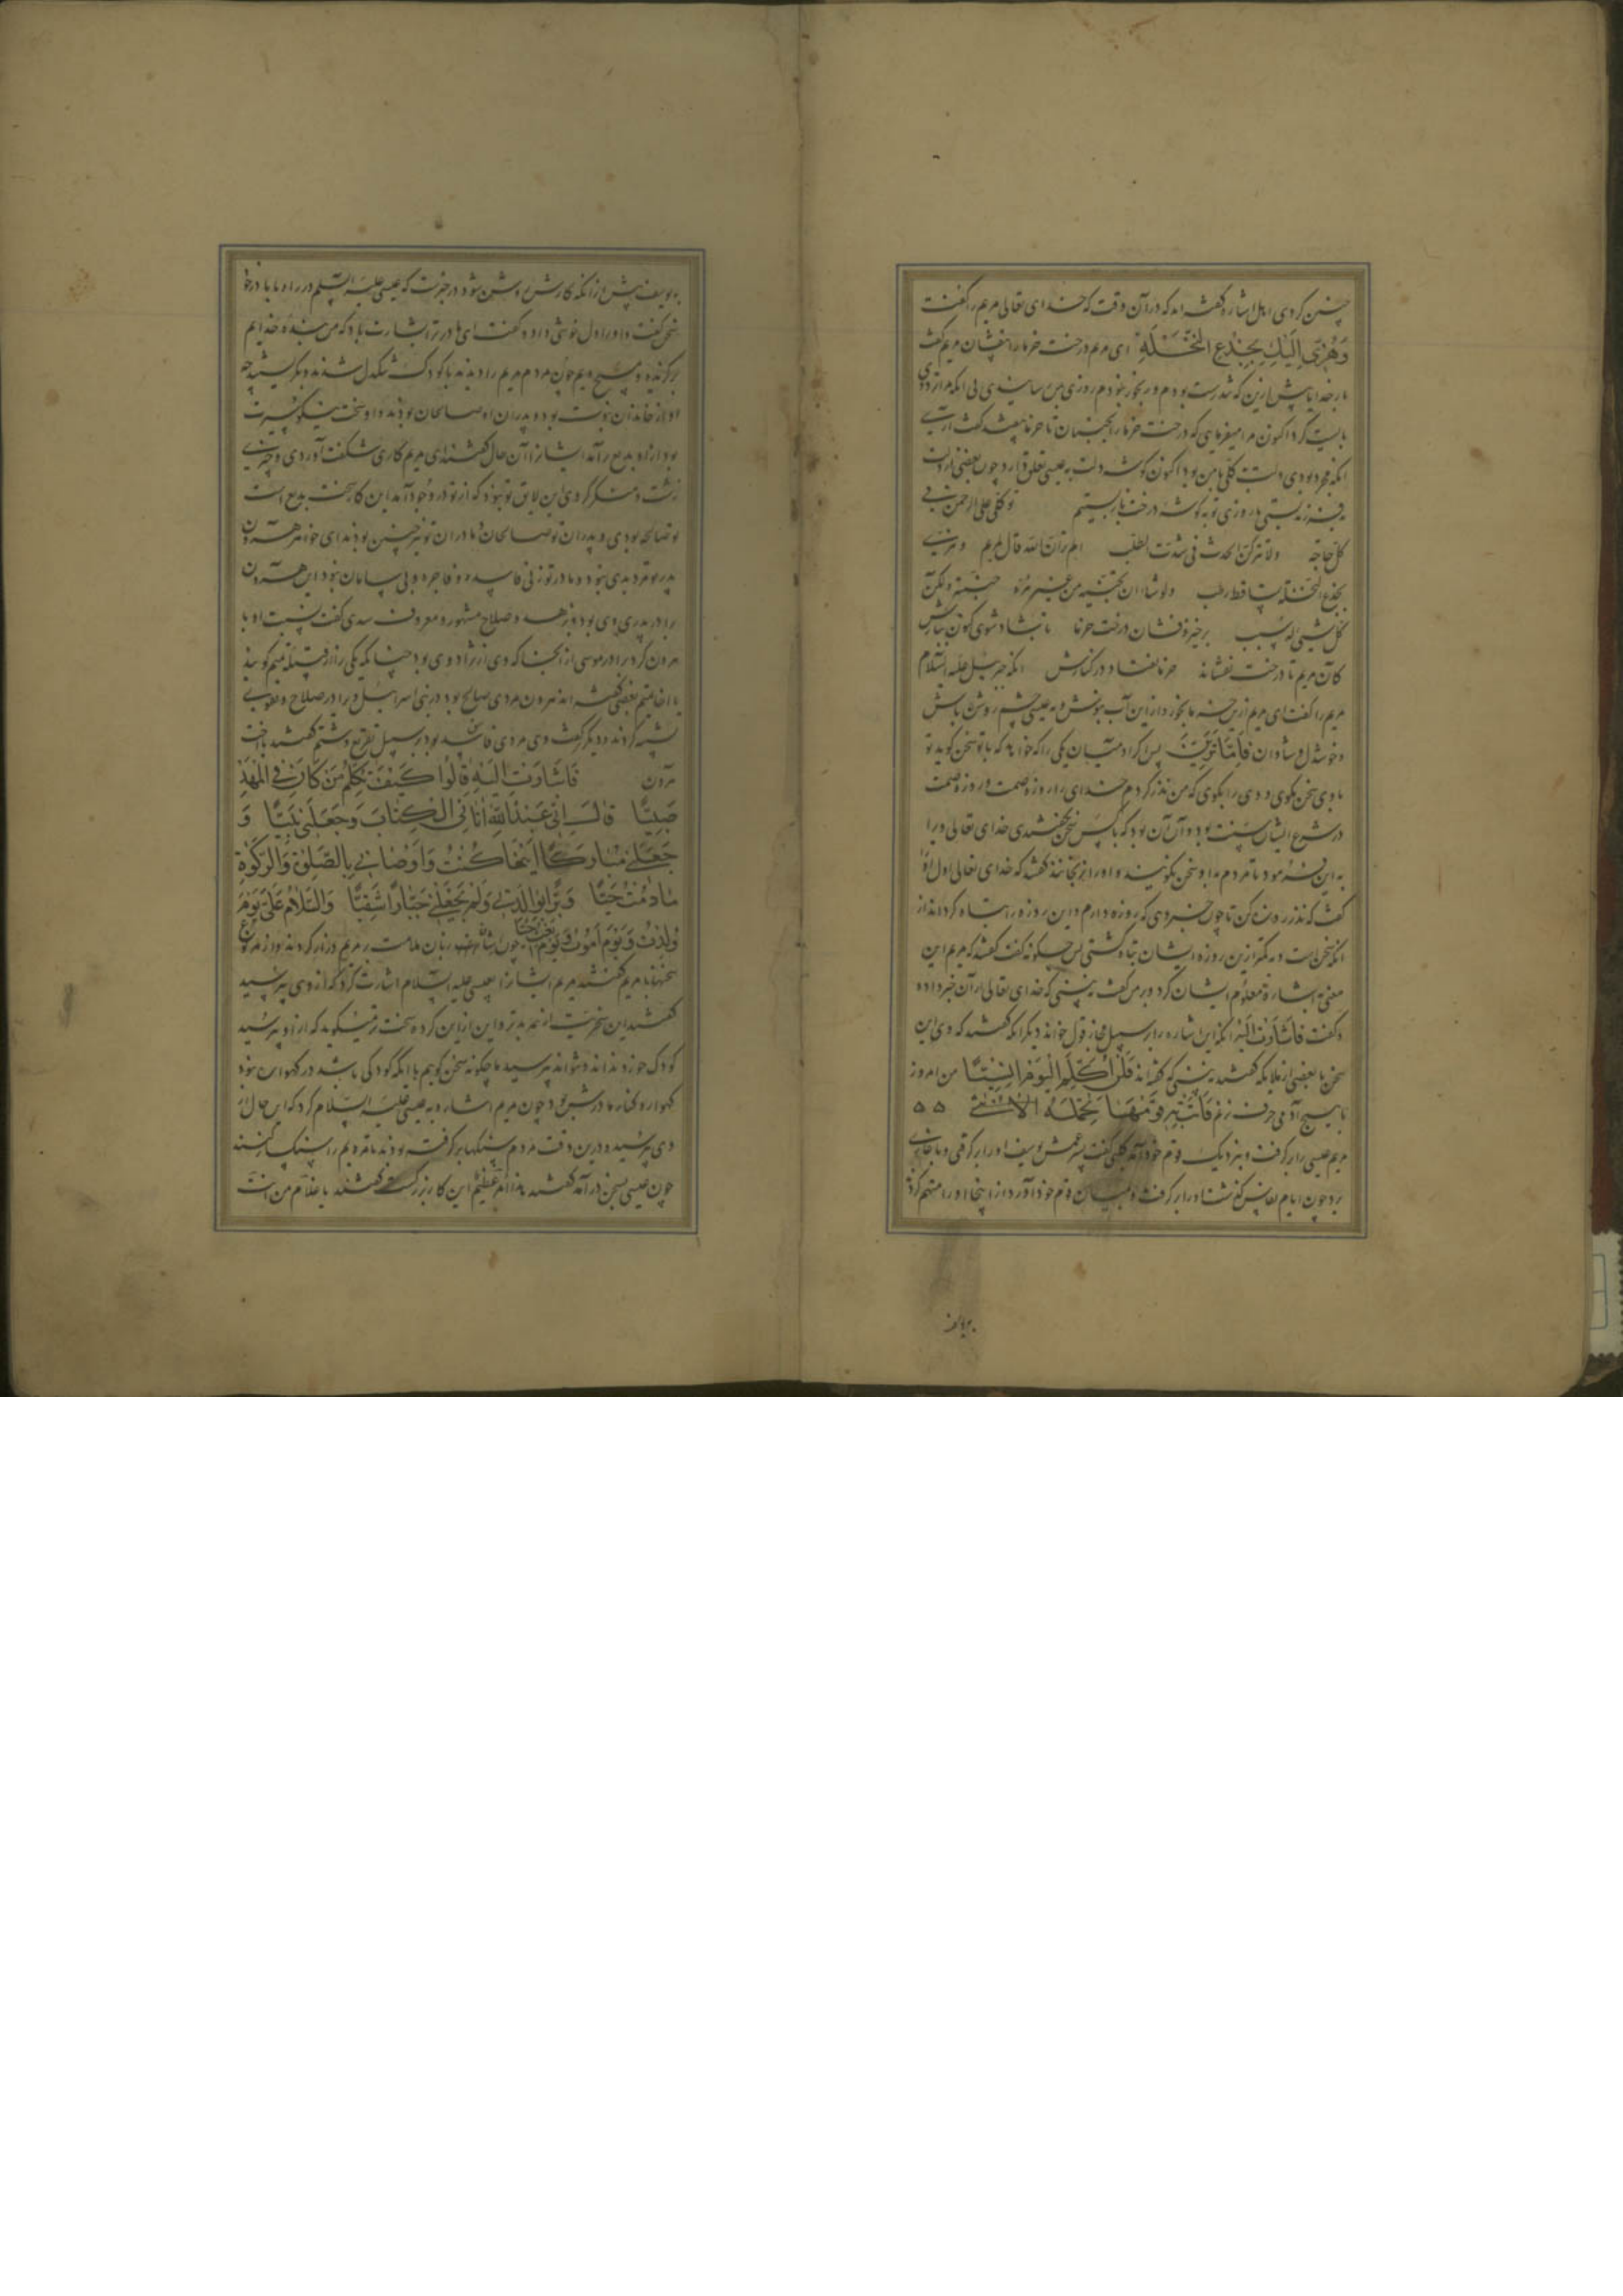 چنین کردی اهل اشارة گفته‌اند که در آن وقت که خدای تعالی مریم را گفت
وَهُزّی اِلَیْكِ بِجِذْعِ النَّخْلَةِ ای مریم درخت خرما را بفشان مریم گفت
بار خدایا پیش ازین که تندرست بودم و رنجور نبودم روزی بمن میرسانیدی بی آنکه مرا از دوی
بایست کرد اکنون مرا میفرمایی که درخت خرما را بجنبان تا خرما بیفتد گفت آری
آنکه مجرد بودی دلت کلی با من بود اکنون گوشه دلت به عیسی تعلق دارد چون بعضی از دلت
به فرزند بستی ما روزی تو به گوشه درخت باز بستیم توکل علی الرحمن فی
کل حاجة ولا تترکن الجد فی شدة الطلب الم تر ان الله قال لمریم وهزی
بجذع النخلة تساقط رطب ولو شاء ان تجنیه من غیر هزه جنته ولکن
کل شیء له سبب برخیز و فشان درخت خرما تا شاد شوی کنون ببارش
کان مریم تا درخت نفشاند خرما نفتاد در کنارش آنکه جبرئیل علیه السلام
مریم را گفت ای مریم ازین خرما بخور و از این آب بنوش و به عیسی چشم روشن باش
و خوشدل و شادان فَاِمَّا تَرَیِنَّ پس اگر آدمیان یکی را که خواهد که با تو سخن گوید تو
با وی سخن مگوی و وی را بگوی که من نذر کردم خدای را روزه صمت و روزه صمت
در شرع ایشان سنت بود و آن آن بود که با کس سخن نگفتندی خدای تعالی او را
به این فرمود تا مردم با او سخن نگویند و او را نرنجانند گفتند که خدای تعالی اول او را
گفت که نذر روزه کن تا چون خبر دهی که روزه دارم و این روزه را تباه کرده‌اند از
آنکه سخن است و به کمتر ازین روزه ایشان تباه گشتی پس چگونه گفت گفتند که مریم این
معنی به اشارة معلوم ایشان کرد و بر من گفت نبینی که خدای تعالی از آن خبر داده
و گفت فَاَشَارَتْ اِلَیْهِ آنکه این اشاره را بر سبیل مجاز قول خواند دیگر آنکه گفتند که وی این
سخن با بعضی از ملائکه گفتند نبینی که گفته‌اند فَلَنْ اُکَلِّمَ الْیَوْمَ اِنْسِیًّا من امروز
با هیچ آدمی حرف نزنم فَاَتَتْ بِهِ قَوْمَهَا تَحْمِلُهُ الآیة
مریم عیسی را بر گرفت و بنزدیک قوم خود آمد کلبی گفت پسر عمش یوسف او را بر گرفت و با جایی
برد چون ایام نفاس بگذشت او را بر گرفت و بمیان قوم خود آورد و از اینجا او را متهم کردند
به یوسف
به یوسف پیش از آنکه کارش روشن شود در خبرست که عیسی علیه السلم در راه با مادر خود
سخن گفت و او را دل خوشی داد و گفت ای مادر ترا بشارت باد که من بنده خدایم
برگزیده و مسیح ویم چون مردم مریم را دیدند با کودک تنگدل شدند و بگریستند چه
او از خاندان نبوت بود و پدران او صالحان بودند و او سخت نیکو سیرت
بود از او بدیع آمد ایشانرا آن حال گفتند ای مریم کاری شگفت آوردی و چیزی
زشت و منکر کردی این لایق تو نبود که از تو در وجود آمد این کار سخت بدیع است
تو صالحه بودی و پدران تو صالحان و مادران تو نیز چنین بودند ای خواهر هرون
پدر تو مرد بدی نبود و مادر تو زنی فاسده و فاجره و بی سامان نبود این هرون
برادر پدری وی بود و بزهد و صلاح مشهور و معروف سدی گفت نسبت او با
هرون کرد برادر موسی از آنجا که وی از نژاد وی بود چنانکه یکی را از قبیله تمیم گویند
یا اخا تمیم بعضی گفته‌اند هرون مردی صالح بود در بنی اسرائیل او را در صلاح و خوبی
تشبیه کردند و دیگر گفت وی مردی فاسد بود بر سبیل تقریع و شتم گفتند یا اخت
هرون فَاَشَارَتْ اِلَیْهِ قَالُوا کَیْفَ نُکَلِّمُ مَنْ کَانَ فِی الْمَهْدِ
صَبِیًّا قَالَ اِنّی عَبْدُ اللهِ آتَانِیَ الْکِتَابَ وَجَعَلَنی نَبِیًّا وَ
جَعَلَنی مُبَارَکًا اَیْنَمَا کُنْتُ وَاَوْصَانی بِالصَّلٰوةِ وَالزَّکٰوةِ
مَا دُمْتُ حَیًّا وَبَرًّا بِوَالِدَتی وَلَمْ یَجْعَلْنی جَبَّارًا شَقِیًّا وَالسَّلَامُ عَلَیَّ یَوْمَ
وُلِدْتُ وَیَوْمَ اَمُوتُ وَیَوْمَ اُبْعَثُ حَیًّا چون زبان ملامت بر مریم دراز کردند و از هر نوع
سخنها با مریم گفتند مریم ایشانرا بعیسی علیه السلام اشارت کرد که از وی بپرسید
گفتند این سخریت از همه بدتر و این ازین کرده سخت‌تر میگوید که از او بپرسید
کودک خرد نداند و نتواند پرسید ما چگونه سخن گوییم با آنکه کودکی باشد در گهواره بود
گهواره کنار مادرش بود چون مریم اشاره به عیسی علیه السلام کرد که این حال از
وی بپرسید و درین وقت مردم سنگها بر گرفته بودند تا مریم را سنگسار کنند
چون عیسی بسخن در آمد گفتند هذا امر عظیم این کار بزرگست گفتند یا غلام من انت